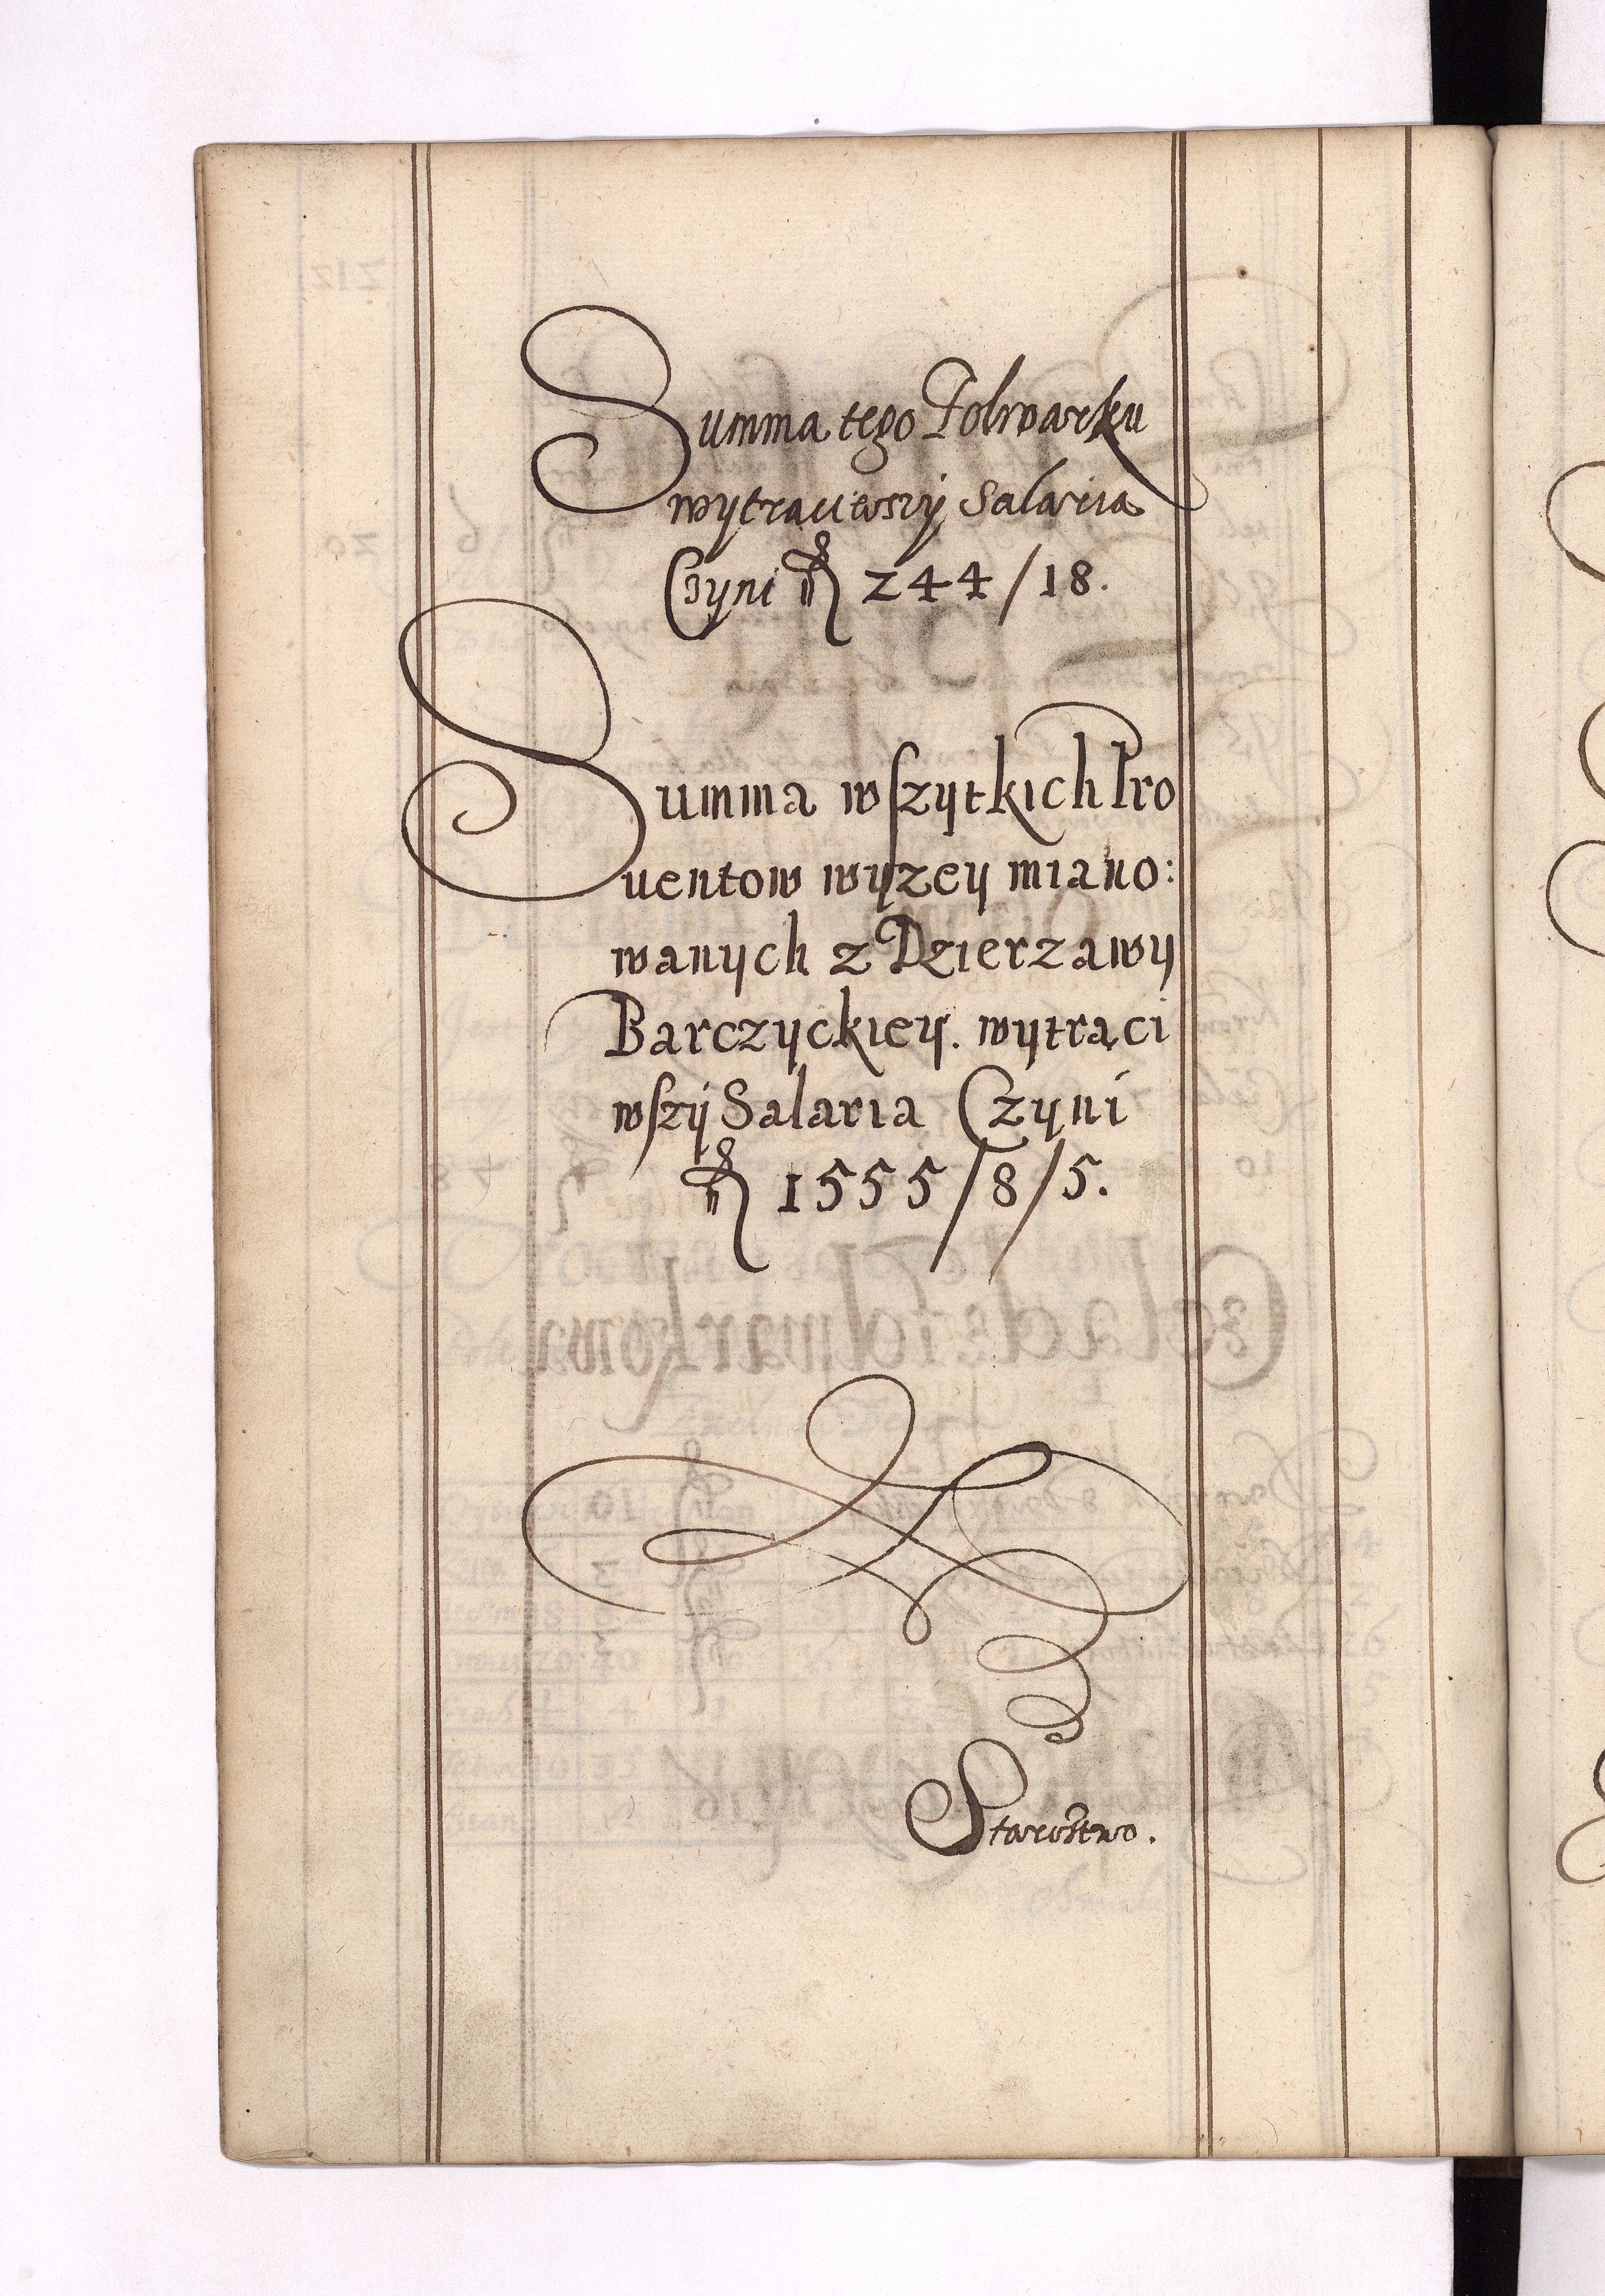 Summa tego Folwarku
wytraciwszy Salaria
Czyni fl 244/18.
Summa wszytkich Pro
uentow wyzey miano:
wanych z Dzierzawy
Barczyckiey. wytrąci
wszy Salaria Czyni
fl 1555/8/5.
Starostwo.